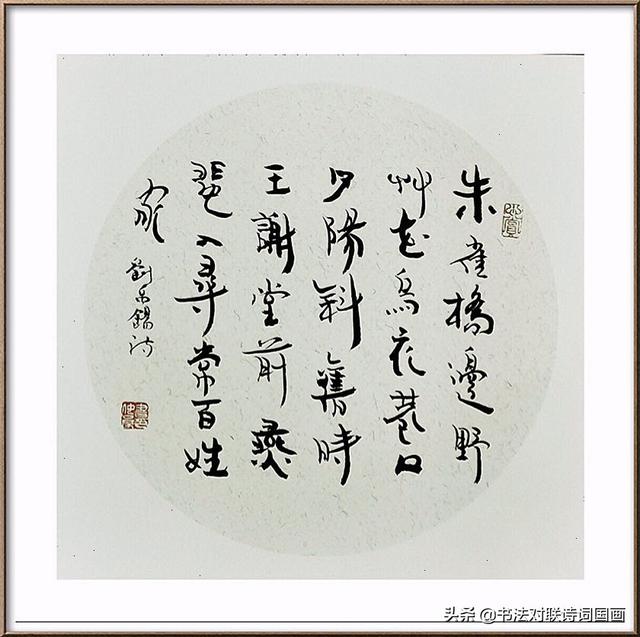 朱雀橋邊野
艸花烏衣巷口
夕陽斜舊時
王謝堂前燕
飛入尋常百姓
家
劉禹錫詩
头条 @书法对联诗词国画